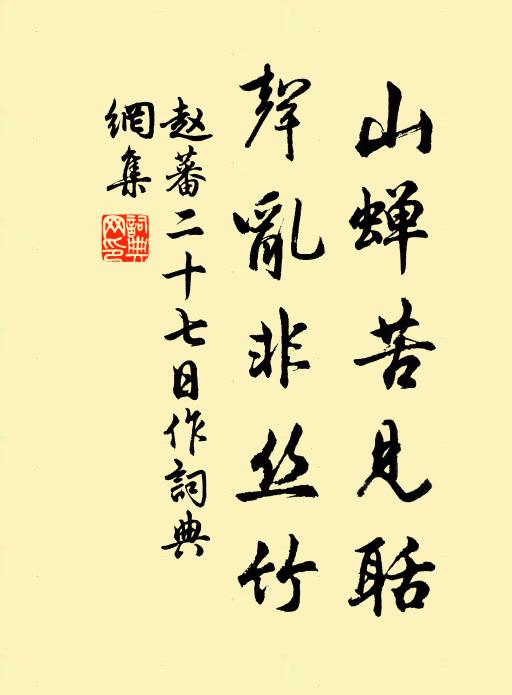 山蝉苦见聒
声亂非丝竹
赵蕃二十七日作詞典
網集
詞典网印